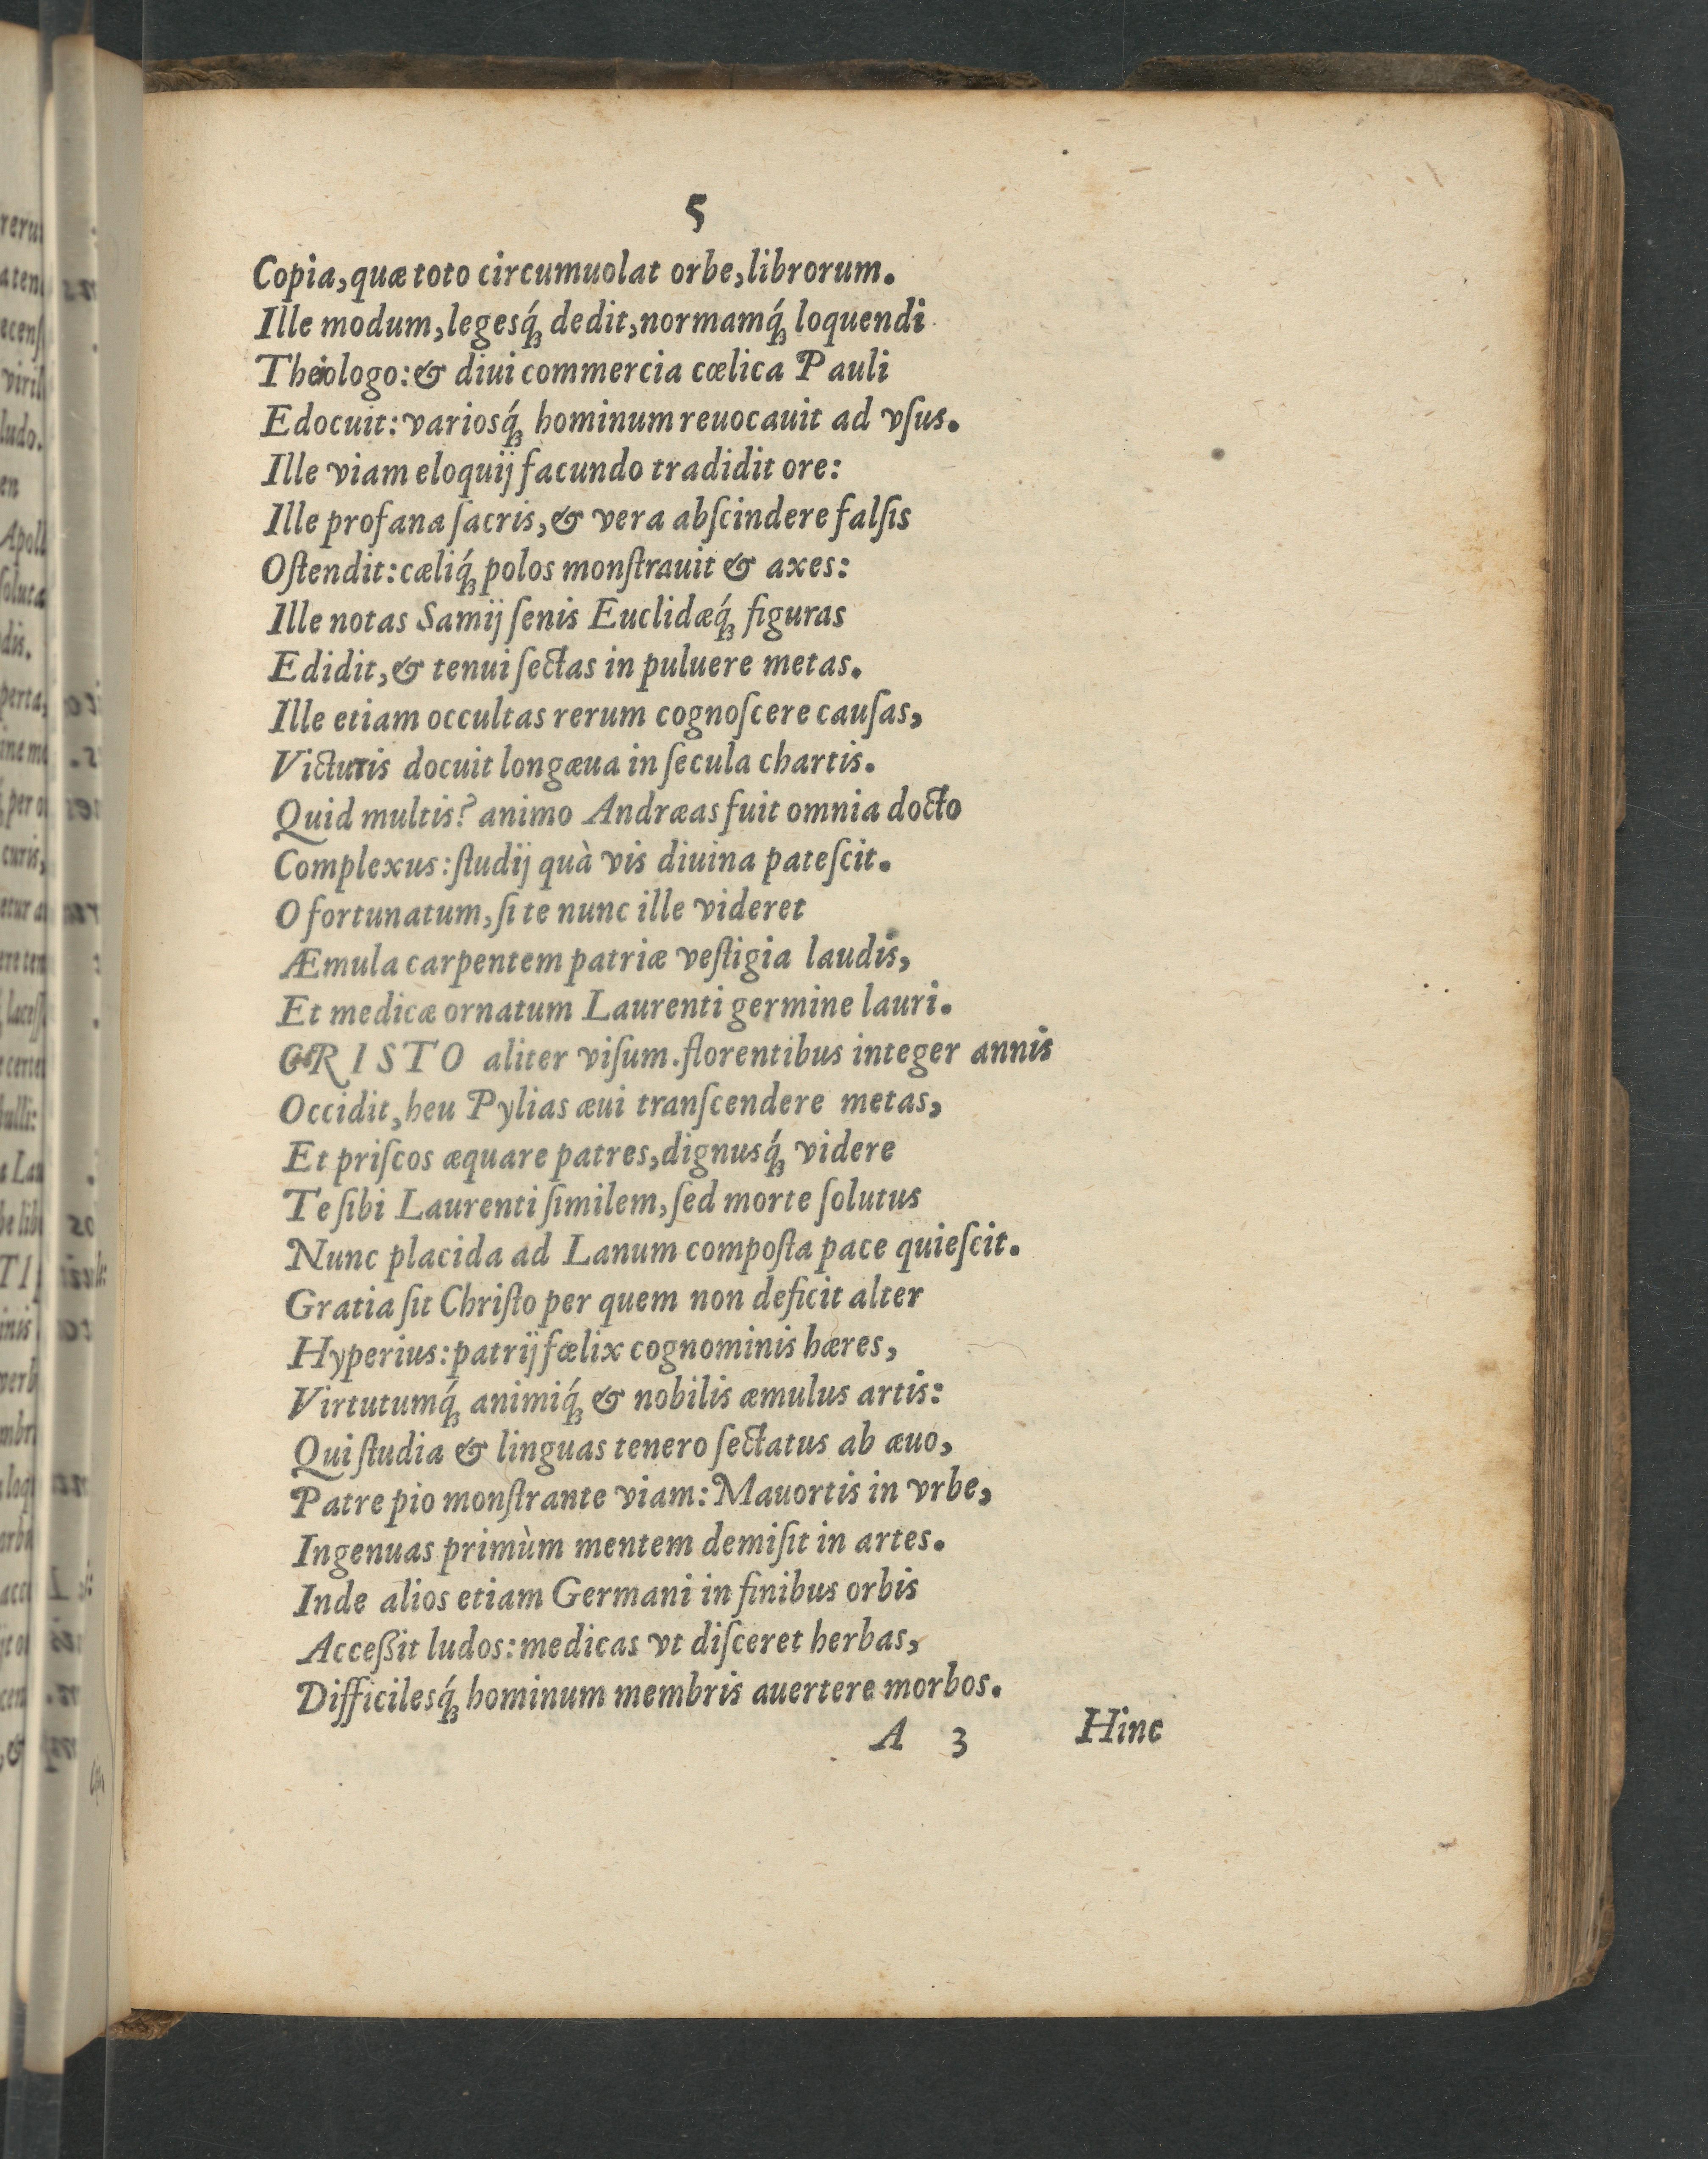 5
Copia, quæ toto circumuolat orbe, librorum.
Ille modum, legesq́ꝫ dedit, normamq́ꝫ loquendi
Theologo: & diui commercia cœlica Pauli
Edocuit: variosq́ꝫ hominum reuocauit ad vſus.
Ille viam eloquij facundo tradidit ore:
Ille profana ſacris, & vera abſcindere falſis
Oſtendit: cæliq́ꝫ polos monſtrauit & axes:
Ille notas Samij ſenis Euclidæq́ꝫ figuras
Edidit, & tenui ſectas in puluere metas.
Ille etiam occultas rerum cognoſcere cauſas,
Victuris docuit longæua in ſecula chartis.
Quid multis? animo Andræas fuit omnia docto
Complexus: ſtudij quà vis diuina pateſcit.
O fortunatum, ſi te nunc ille videret
Æmula carpentem patriæ veſtigia laudis,
Et medicæ ornatum Laurenti germine lauri.
CHRISTO aliter viſum. florentibus integer annis
Occidit, heu Pylias æui tranſcendere metas,
Et priſcos æquare patres, dignusq́ꝫ videre
Te ſibi Laurenti ſimilem, ſed morte ſolutus
Nunc placida ad Lanum compoſta pace quieſcit.
Gratia ſit Chriſto per quem non deficit alter
Hyperius: patrij fœlix cognominis hæres,
Virtutumq́ꝫ animiq́ꝫ & nobilis æmulus artis:
Qui ſtudia & linguas tenero ſectatus ab æuo,
Patre pio monſtrante viam: Mauortis in vrbe,
Ingenuas primùm mentem demiſit in artes.
Inde alios etiam Germani in finibus orbis
Acceßit ludos: medicas vt diſceret herbas,
Difficilesq́ꝫ hominum membris auertere morbos.
A 3 Hinc